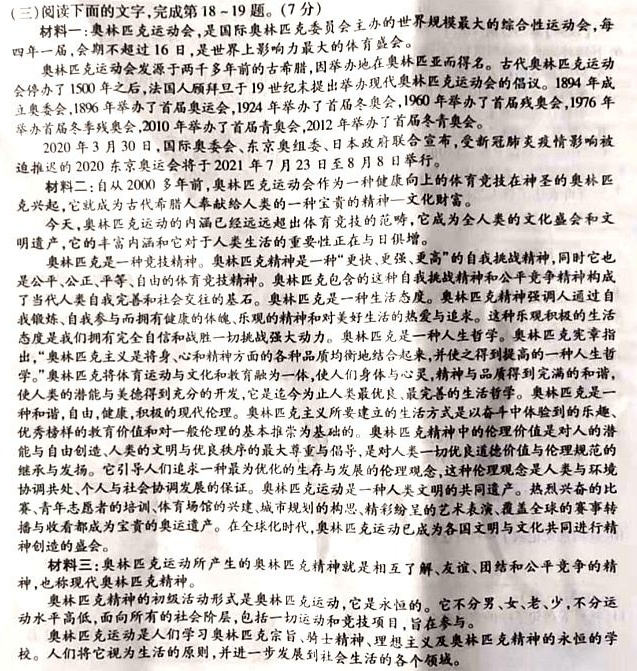 (三)阅读下面的文字,完成第18~19题。(7分)
材料一:奥林匹克运动会,是国际奥林匹克委员会主办的世界规模最大的综合性运动会,每
四年一届,会期不超过16日,是世界上影响力最大的体育盛会。
奥林匹克运动会发源于两千多年前的古希腊,因举办地在奥林匹亚而得名。古代奥林匹克运动
会停办了1500年之后,法国人顾拜旦于19世纪末提出举办现代奥林匹克运动会的倡议。1894年成
立奥委会,1896年举办了首届奥运会,1924年举办了首届冬奥会,1960年举办了首届残奥会,1976年
举办首届冬季残奥会,2010年举办了首届青奥会,2012年举办了首届冬青奥会。
2020年3月30日,国际奥委会、东京奥组委、日本政府联合宣布,受新冠肺炎疫情影响被
迫推迟的2020东京奥运会将于2021年7月23日至8月8日举行。
材料二:自从2000多年前,奥林匹克运动会作为一种健康向上的体育竞技在神圣的奥林匹
克兴起,它就成为古代希腊人奉献给人类的一种宝贵的精神—文化财富。
今天,奥林匹克运动的内涵已经远远超出体育竞技的范畴,它成为全人类的文化盛会和文
明遗产,它的丰富内涵和它对于人类生活的重要性正在与日俱增。
奥林匹克是一种竞技精神。奥林匹克精神是一种“更快、更强、更高”的自我挑战精神,同时它也
是公平、公正、平等、自由的体育竞技精神。奥林匹克包含的这种自我挑战精神和公平竞争精神构成
了当代人类自我完善和社会交往的基石。奥林匹克是一种生活态度。奥林匹克精神强调人通过自
我锻炼、自我参与而拥有健康的体魄、乐观的精神和对美好生活的热爱与追求。这种乐观积极的生活
态度是我们拥有完全自信和战胜一切挑战强大动力。奥林匹克是一种人生哲学。奥林匹克宪章指
出,“奥林匹克主义是将身、心和精神方面的各种品质均衡地结合起来,并使之得到提高的一种人生哲
学。”奥林匹克将体育运动与文化和教育融为一体,使人们身体与心灵,精神与品质得到完满的和谐,
使人类的潜能与美德得到充分的开发,它是迄今为止人类最优良、最完善的生活哲学。奥林匹克是一
种和谐,自由,健康,积极的现代伦理。奥林匹克主义所要建立的生活方式是以奋斗中体验到的乐趣、
优秀榜样的教育价值和对一般伦理的基本推崇为基础的。奥林匹克精神中的伦理价值是对人的潜
能与自由创造、人类的文明与优良秩序的最大尊重与倡导,是对人类一切优良道德价值与伦理规范的
继承与发扬。它引导人们追求一种最为优化的生存与发展的伦理观念,这种伦理观念是人类与环境
协调共处、个人与社会协调发展的保证。奥林匹克运动是一种人类文明的共同遗产。热烈兴奋的比
赛、青年志愿者的培训、体育场馆的兴建、城市规划的构思、精彩纷呈的艺术表演、覆盖全球的赛事转
播与收看都成为宝贵的奥运遗产。在全球化时代,奥林匹克运动已成为各国文明与文化共同进行精
神创造的盛会。
材料三:奥林匹克运动所产生的奥林匹克精神就是相互了解、友谊、团结和公平竞争的精
神,也称现代奥林匹克精神。
奥林匹克精神的初级活动形式是奥林匹克运动,它是永恒的。它不分男、女、老、少,不分运
动水平高低,面向所有的社会阶层,包括一切运动和竞技项目,旨在参与。
奥林匹克运动是人们学习奥林匹克宗旨、骑士精神、理想主义及奥林匹克精神的永恒的学
校。人们将它视为生活的原则,并进一步发展到社会生活的各个领域。